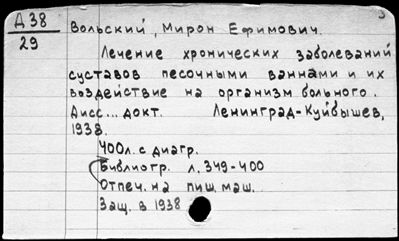 Д 38
29
Вольский, Мирон Ефимович.
Лечение хронических заболеваний
суставов песочными ваннами и их
воздействие на организм больного.
Дисс... докт. Ленинград-Куйбышев,
1938.
400л. с диагр.
Библиогр. л. 349-400
Отпеч. на пиш. маш.
Защ. в 1938